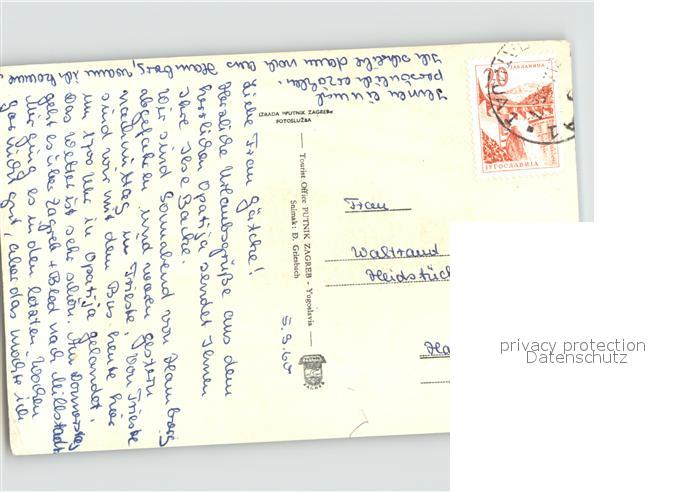 Liebe Frau Gätcke!
Herzliche Urlaubsgrüße aus dem
herrlichen Opatija sendet Ihnen
Ihre Ilse Backe.
Wir sind Sonnabend von Hamburg
abgefahren und waren gestern
nachmittag in Trieste, von Trieste
sind wir mit dem Bus heute hier
um Uhr in Opatija gelandet.
Das Wetter ist sehr schön. Am Donnerstag
geht es über Zagreb + Bled nach Millstadt
Mir ging es in den letzten Wochen
gar nicht gut, aber das möchte ich
Ihnen einmal
persönlich erzählen.
Ich schreibe dann noch aus Hamburg, wann ich komme.
IZRADA »PUTNIK ZAGREB«
FOTOSLUŽBA
Tourist Office PUTNIK ZAGREB - Yugoslavia
Snimak: Đ. Griesbach
5.9.60
ZAGREB
20
JABLANICA
JUGOSLAVIJA
Frau
Waltraud
Heidstüc
Ha
privacy protection
Datenschutz